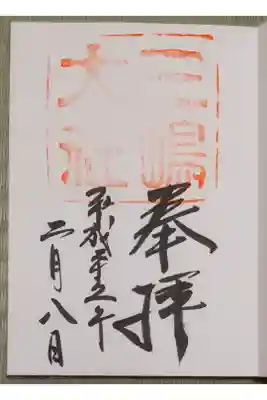 三嶋
大社
奉拝
平成二十五年
二月八日